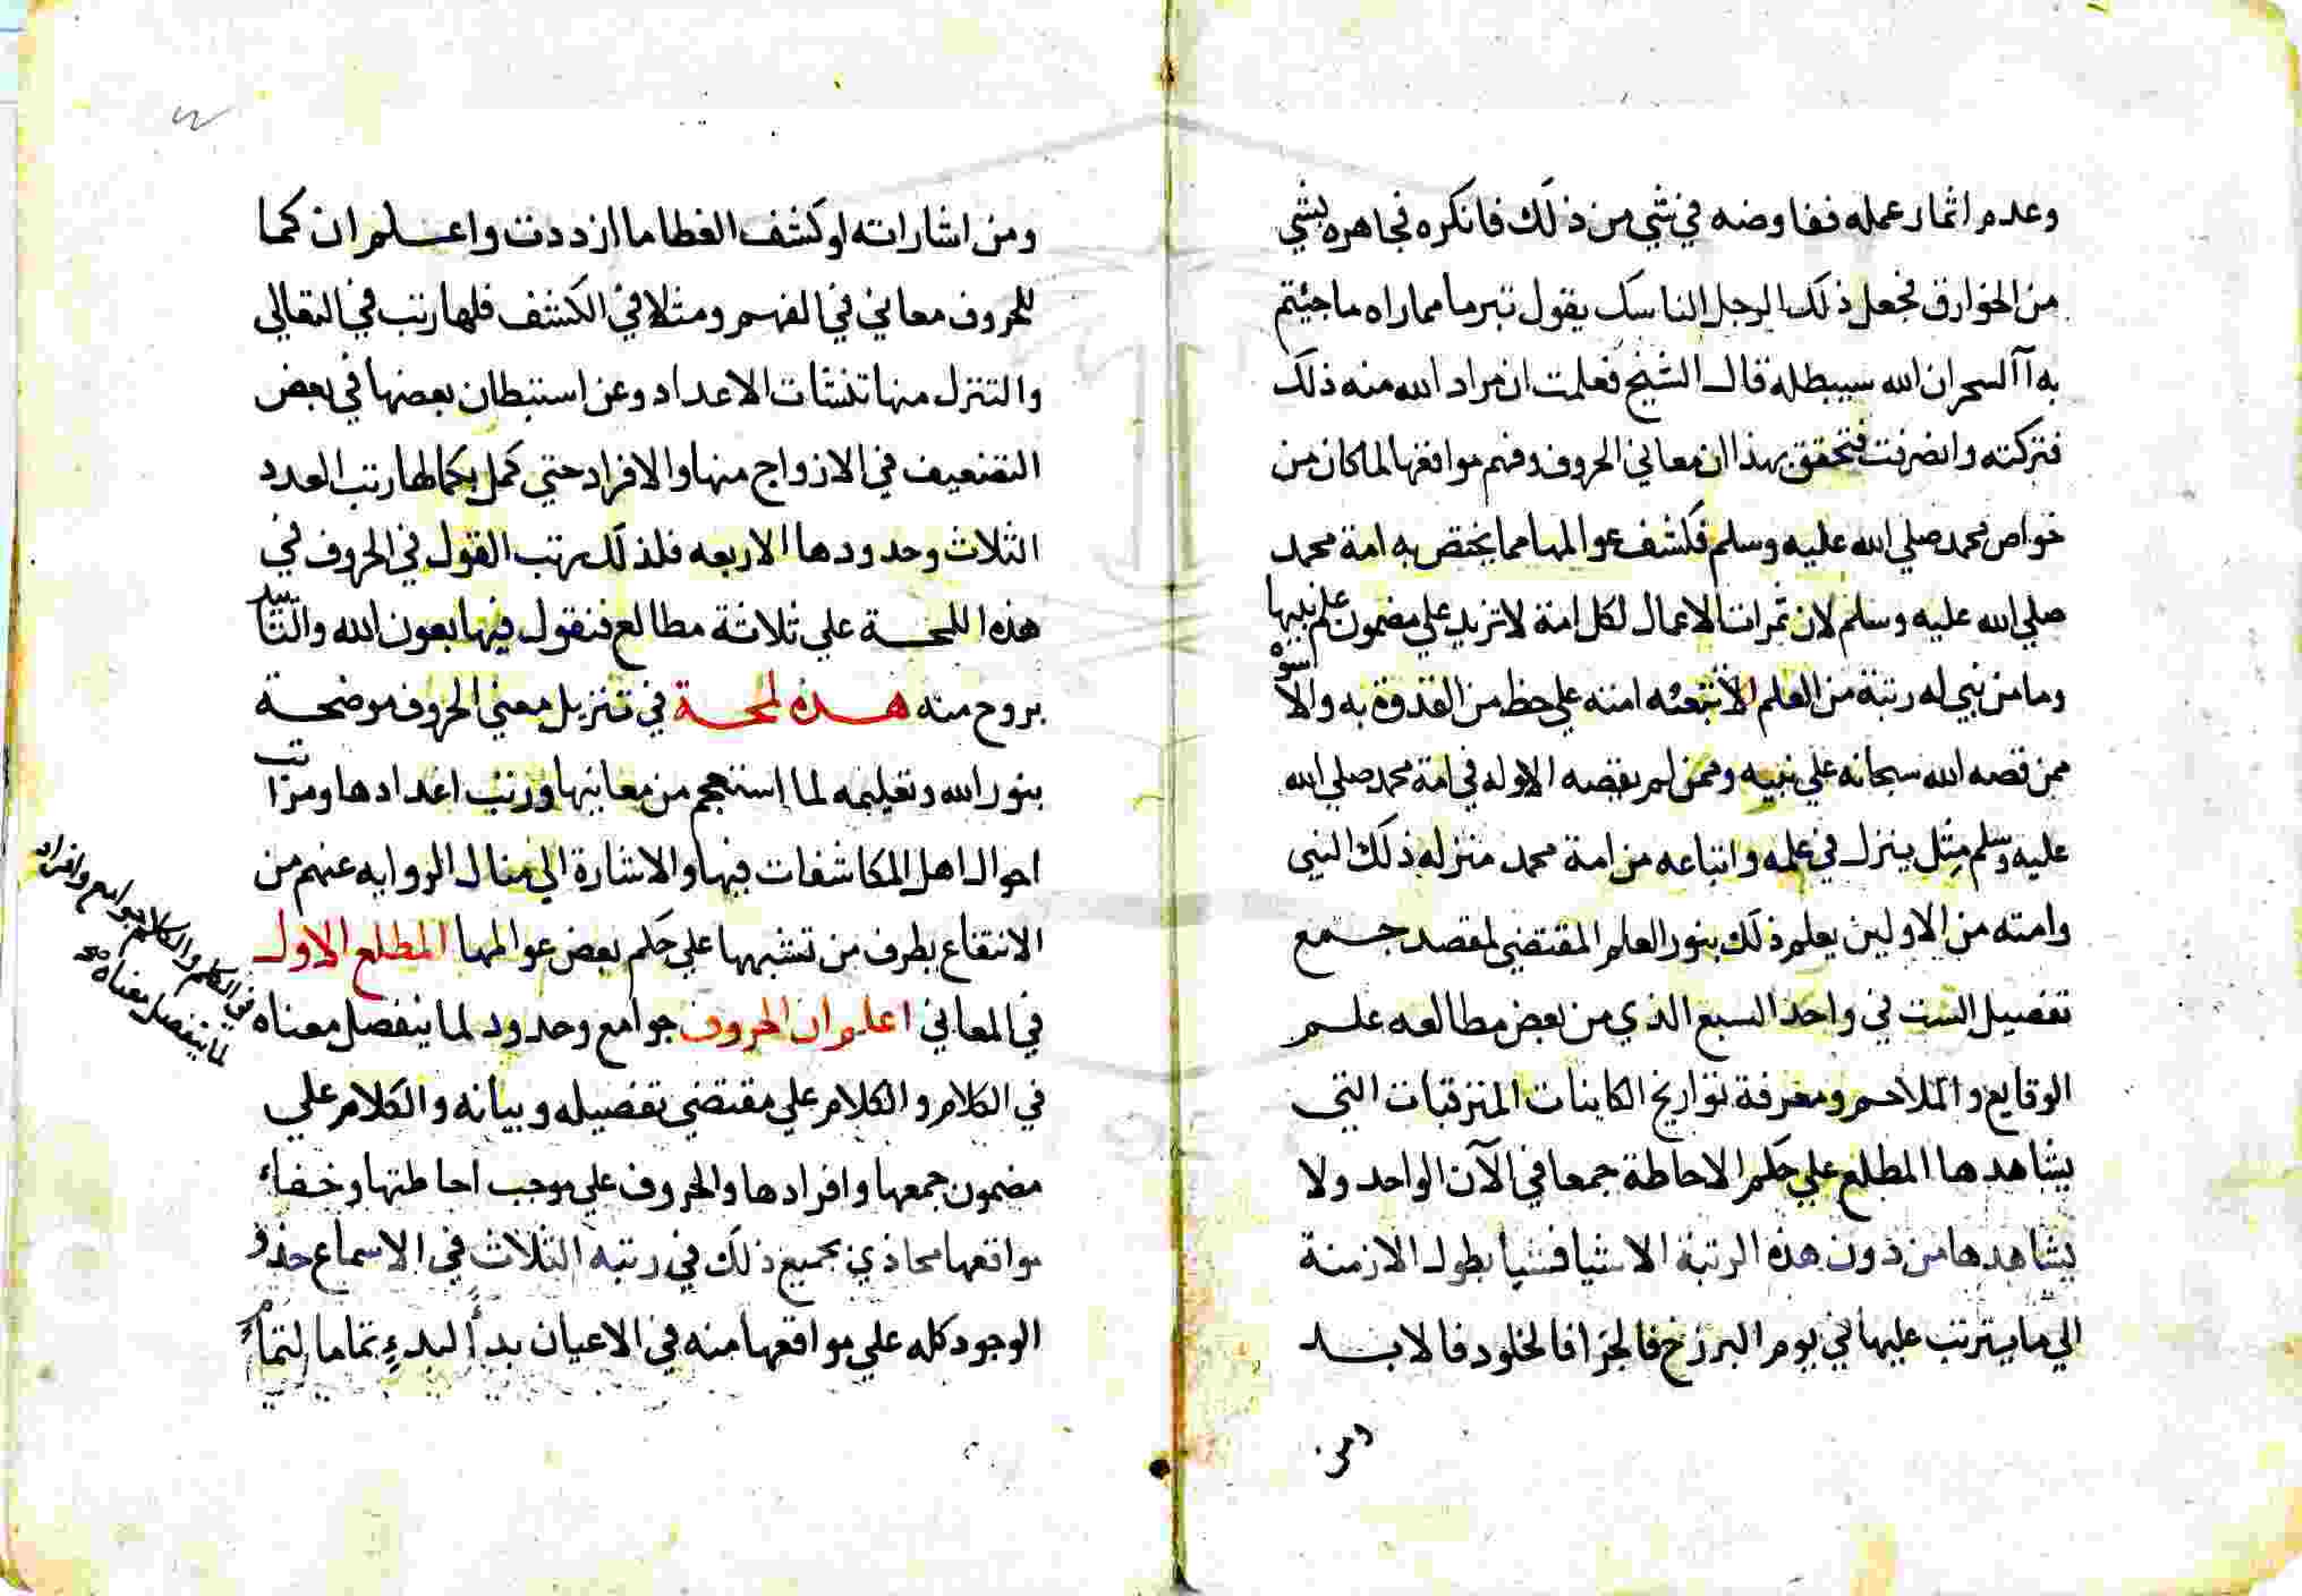 وعدم اثمار عمله ففاوضه في شي من ذلك فانكره فجاهره بشي
من الخوارق فجعل ذلك الرجل الناسك يقول تبرما مماراه ماجئتم
به آلسحر ان الله سيبطله قال الشيخ فعلمت ان مراد الله منه ذلك
فتركته وانصرفت فتحقق بهذا ان معاني الحروف وفهم مواقعها لما كان من
خواص محمد صلي الله عليه وسلم فكشف عوالمها مما يختص به امة محمد
صلي الله عليه وسلم لان ثمرات الاعمال لكل امة لا تزيد علي مضمون علم نبيها
وما من نبي له رتبة من العلم الا تتبعه امته علي حظ من القدوة به والاسوة
ممن قصه الله سبحانه علي نبيه وممن لم يقصه الا وله في امة محمد صلي الله
عليه وسلم مثل ينزل في علمه واتباعه من امة محمد منزله ذلك النبي
وامته من الاولين يعلم ذلك بنور العلم المقتضي لمقصد جمع
تفصيل الست في واحد السبع الذي من بعض مطالعه علم
الوقايع والملاحم ومعرفة تواريخ الكاينات المترقبات التي
يشاهدها المطلع علي حكم الاحاطة جمعا في الآن الواحد ولا
يشاهدها من دون هذه الرتبة الا شيا فشيا بطول الازمنة
الي ما يترتب عليها في يوم البرزخ فالجزا فالخلود فالابد
ومن
ومن اشاراته لو كشف الغطا ما ازددت واعلم ان كما
للحروف معاني في الفهم ومثلا في الكشف فلها رتب في التعالي
والتنزل منها تنشات الاعداد وعن استنبطان بعضها في بعض
التضعيف في الازواج منها والافراد حتي كمل بكمالها رتب العدد
الثلاث وحدودها الاربعه فلذلك نرتب القول في الحروف في
هذه اللمحة علي ثلاثة مطالع فنقول فيها بعون الله والتاييد
بروح منه هذه لمحة في تنزيل معني الحروف موضحة
بنور الله وتعليمه لما استعجم من معانيها ورتب اعدادها ومراتب
احوال اهل المكاشفات فيها والاشارة الي منال الروايه عنهم من
الانتفاع بطرف من تشبهها علي حكم بعض عوالمها المطلع الاول
في المعاني اعلم ان الحروف جوامع وحدود لما ينفصل معناه
في الكلام والكلام علي مقتضي تفصيله وبيانه والكلام علي
مضمون جمعها وافرادها والحروف علي موجب احاطتها وخفاء
مواقعها محاذي بجميع ذلك في رتبه الثلاث في الاسماع حذو
الوجود كله علي مواقعها منه في الاعيان بدأ لبدء تماما لتمام
في الكلم والكلم جوامع وافراد
لما ينفصل معناه صح